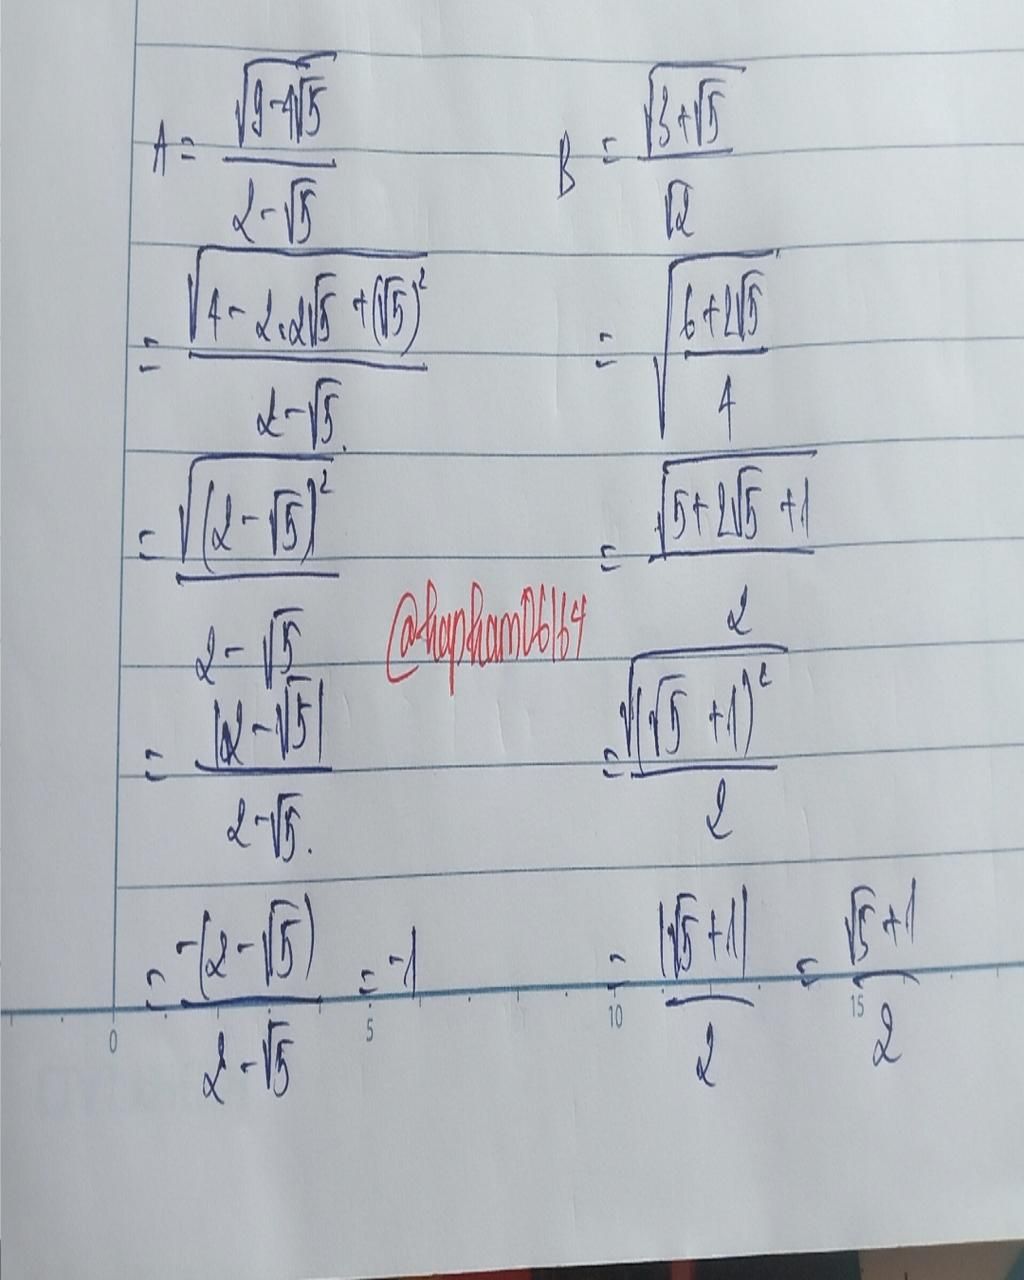 A = √(9-4√5) / (2-√5)
= √(4-2.2√5+(√5)²) / (2-√5)
= √((2-√5)²) / (2-√5)
= |2-√5| / (2-√5)
= -(2-√5) / (2-√5) = -1
B = √(3+√5) / √2
= √((6+2√5) / 4)
= √(5+2√5+1) / 2
= √((√5+1)²) / 2
= |√5+1| / 2 = (√5+1) / 2
@hapham06164
0 5 10 15